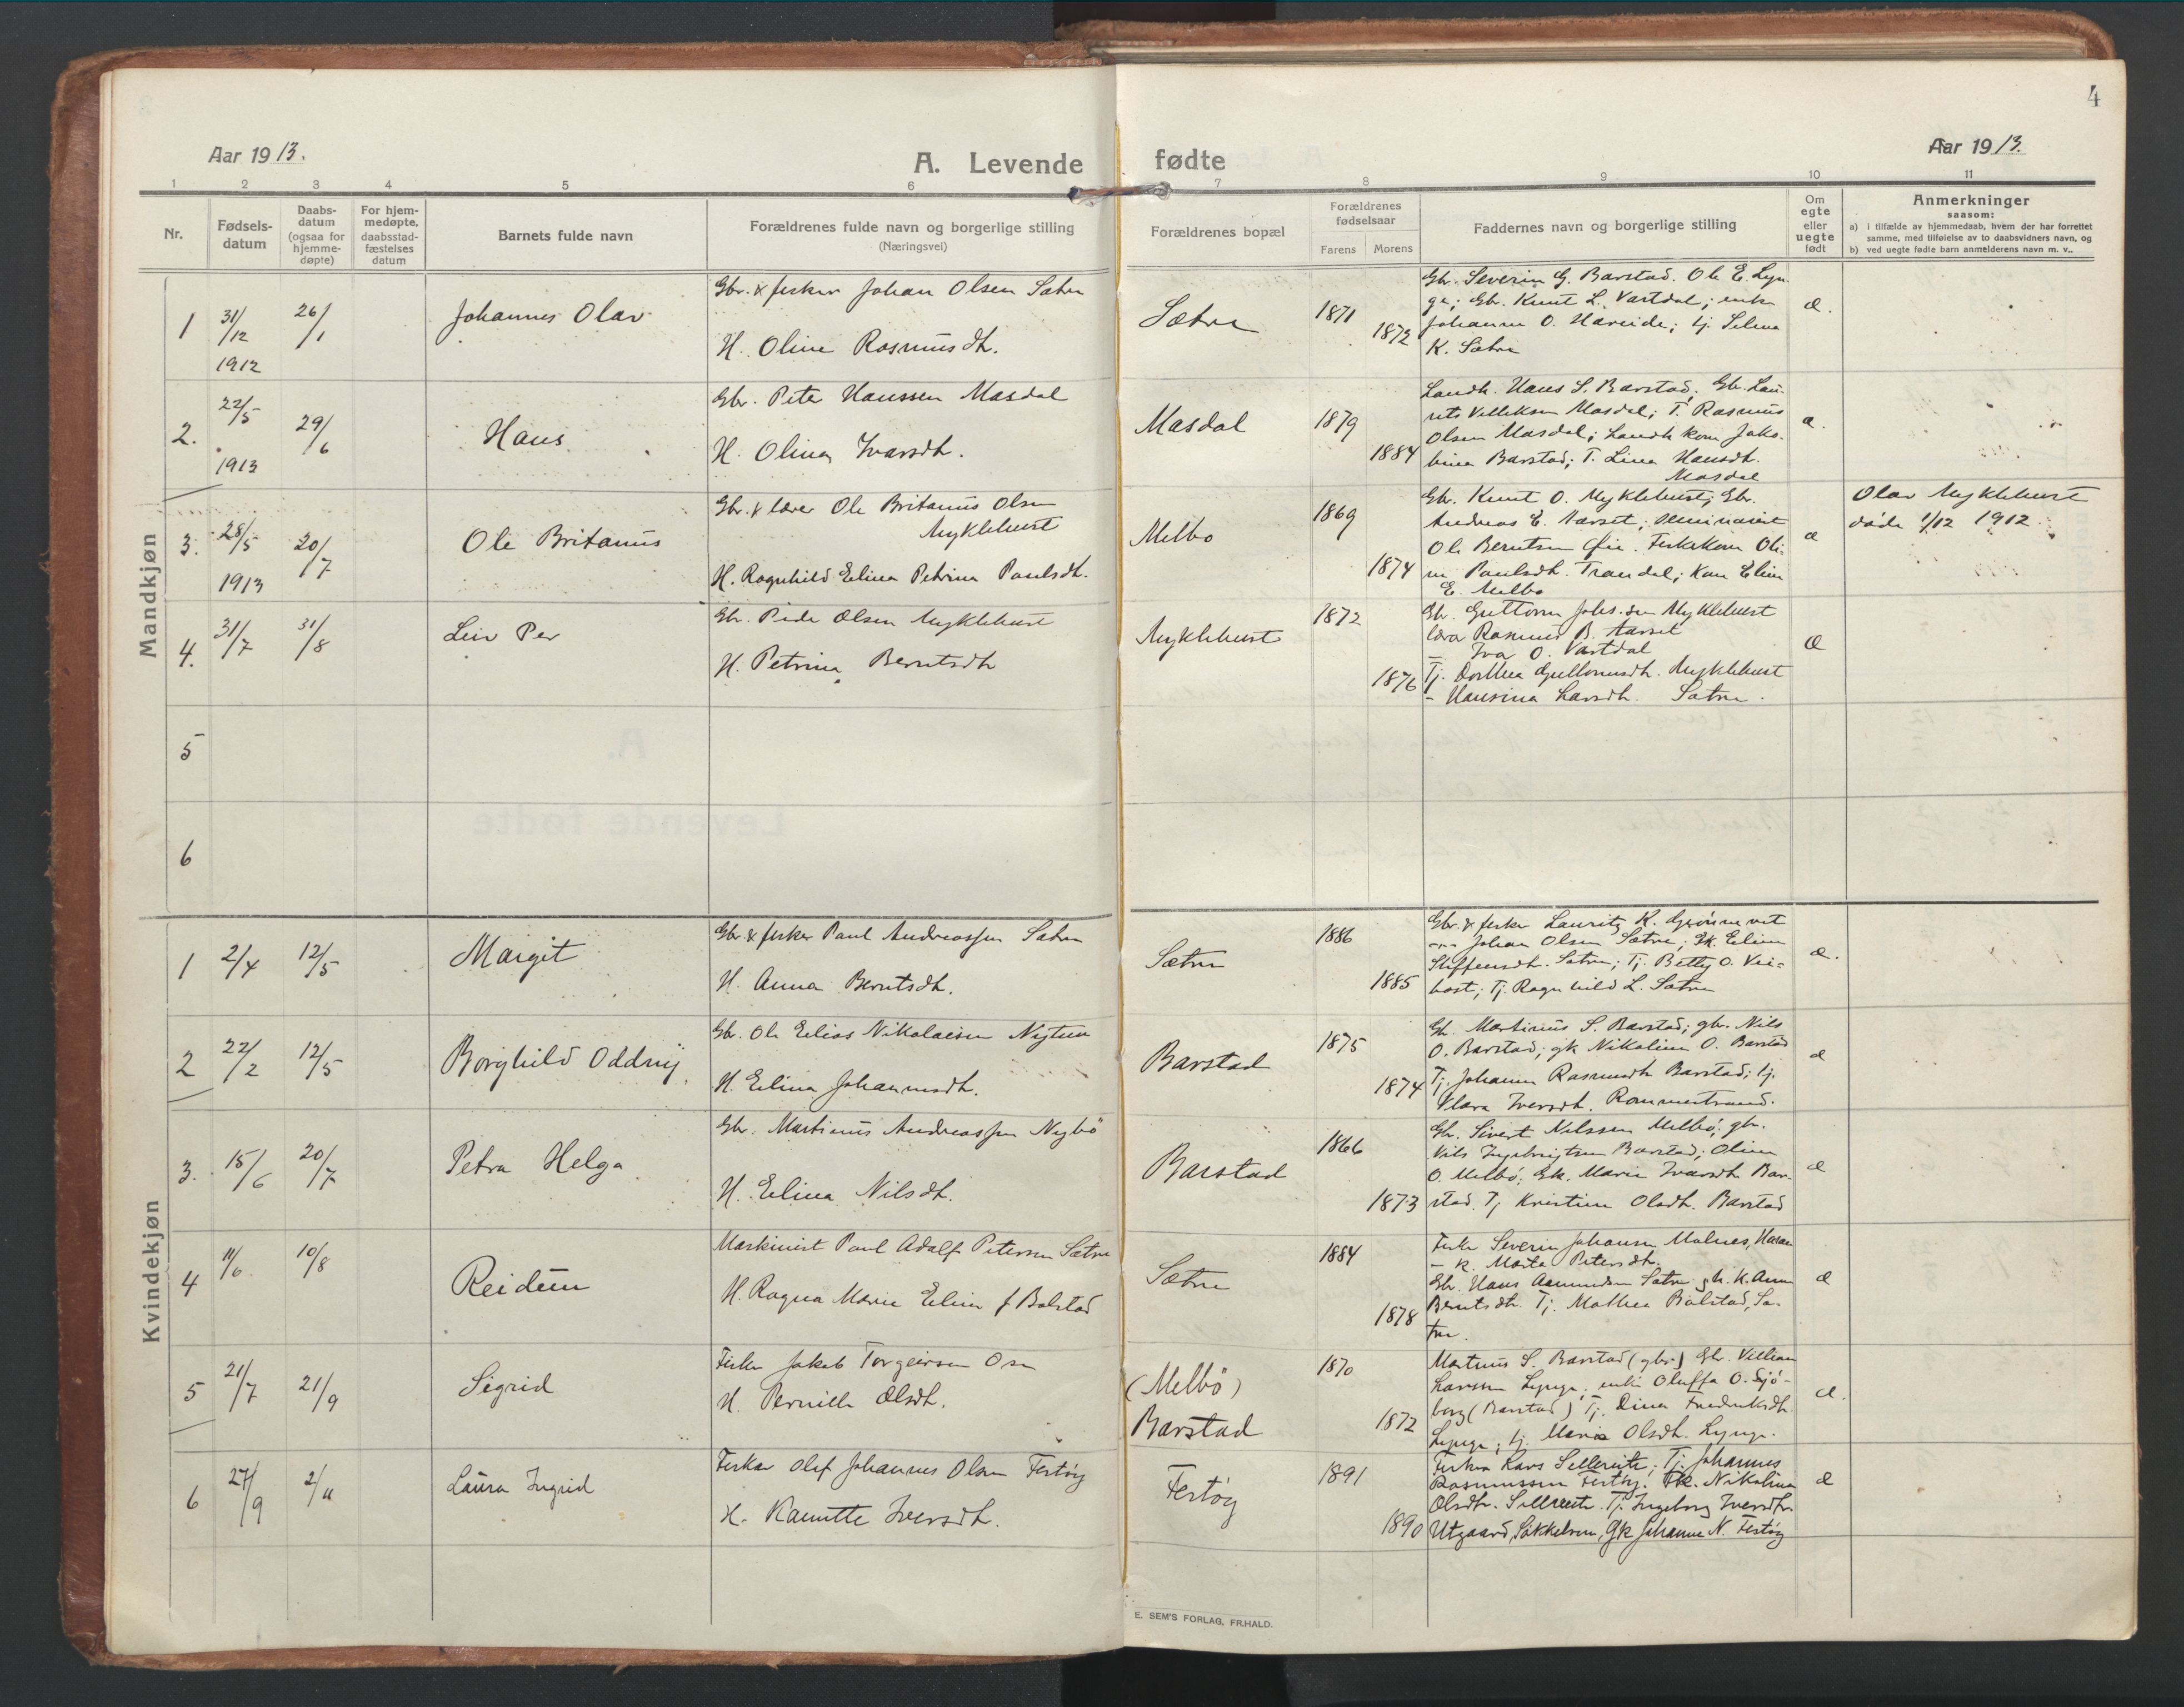 4
Aar 1913.
A. Levende
fødte
Aar 1913.
1 2 3 4 5 6 7 8 9 10 11
Nr.
Fødsels-
datum
Daabs-
datum
(ogsaa for
hjemme-
døpte)
For hjem-
medøpte,
daabsstad-
fæstelses
datum
Barnets fulde navn
Forældrenes fulde navn og borgerlige stilling
(Næringsvei)
Forældrenes bopæl
Forældrenes
fødselsaar
Farens Morens
Faddernes navn og borgerlige stilling
Om
egte
eller
uegte
født
Anmerkninger
saasom:
a) i tilfælde av hjemmedaab, hvem der har forrettet
samme, med tilføielse av to daabsvidners navn, og
b) ved uegte fødte barn anmelderens navn m. v..
Mandkjøn
1
31/12
1912
26/1
Johannes Olav
Gbr. & fisker Johan Olsen Sætre
H. Oline Rasmusdt.
Sætre
1871
1872
Gbr. Severin G. Barstad. Ole E. Lyn-
ge; Gbr. Knut L. Vartdal; enke
Johanne O. Hareide; tj. Selma
K. Sætre
æ.
2.
22/5
1913
29/6
Hans
Gbr. Peter Hanssen Masdal
H. Olina Ivarsdt.
Masdal
1879
1884
Landh. Hans S. Barstad; Gbr. Lau-
rits Masdal; T. Rasmus
Olsen Masdal; Landh kone Jako-
bina Barstad; T. Lina Hansdt.
Masdal
æ.
3.
28/5
1913
20/7
Ole Britanus
Gbr. & lærer Ole Britanus Olsen
Myklebust
H. Ragnhild Elina Petrina Paulsdt.
Melbo
1869
1874
Gbr. Knut O. Myklebust; Gbr.
Andreas E. Aarset; seminarist
Ole Berntsen Øie. Fiskekone Oli-
ne Paulsdt. Trandal; Kone Eline
E. Melbo
æ
Olav Myklebust
døde 1/12 1912.
4.
31/7
31/8
Leiv Per
Gbr. Peder Olsen Myklebust
H. Petrina Berntsdt
Myklebust
1872
1876
Gbr. Guttorm Johs.sen Myklebust
lærer Rasmus B. Aarset
— Ivar O. Vartdal
Tj. Dorthea Guttormsdt. Myklebust
- Hansina Larsdt. Sætre.
æ
5
6
Kvindekjøn
1
2/4
12/5
Margit
Gbr. & fisker Paul Andreassen Sætre
H. Anna Berntsdt.
Sætre
1886
1885
Gbr. & fisker Lauritz K. Grønnevet
-"- Johan Olsen Sætre; Gk. Eline
Steffensdt. Sætre; Tj. Betty O. Vei-
bost; Tj. Ragnhild L. Sætre
æ.
2
22/2
12/5
Borghild Oddny
Gbr. Ole Elias Nikolaisen Nytun
H. Elina Johannesdt.
Barstad
1875
1874
Gb. Martinus S. Barstad; gbr. Nils
O. Barstad; gk Nikoline O. Barstad
Tj. Johanne Rasmusdt Barstad; tj.
Klara Iversdt. Rommestrand.
æ
3.
15/6
20/7
Petra Helga
Gbr. Martinus Andreassen Nybö
H. Elina Nilsdt.
Barstad
1866
1873
Gb. Sivert Nilssen Melbö; gbr.
Nils Ingebrigtsen Barstad; Oline
O. Melbö; Gk. Marie Ivarsdt Bar-
stad. Tj Kristine Olsdt. Barstad
æ
4
11/6
10/8
Reidun
Maskinist Paul Adolf Petersen Sætre
H. Ragna Marie Eline f Bolstad
Sætre
1884
1878
Fisker Severin Johansen Molnes, Haram
- K. Marta Petersdt.
Gbr. Hans Aamundsen Sætre gb. K. Anne
Berntsdt. Tj. Mathea Bolstad, Sæ-
tre.
æ
5
21/7
21/9
Sigrid
Fisker Jakob Torgeirsen Osn
H. Pernille Olsdt.
(Melbö)
Barstad
1870
1872
Martinus S. Barstad (gbr) Gbr. Villian
Larssen Lynge; enke Oluffa O. Sjö-
borg (Barstad) Tj. Dina Fredriksdt.
Lynge; tj. Marie Olsdt. Lynge.
æ.
6
27/9
2/11
Laura Ingrid
Fisker Olaf Johannes Olsen Festöy
H. Kanutte Iversdt.
Festöy
1891
1890
Fisker Lars Sellereite; Tj. Johannes
Rasmussen Festöy. Fk. Nikolina
Olsdtr. Sellereite. Tj. Ingeborg Iversdtr.
Utgaard, Søkkelven, Gk Johanne N. Festöy
æ
E. SEM'S FORLAG, FR.HALD.